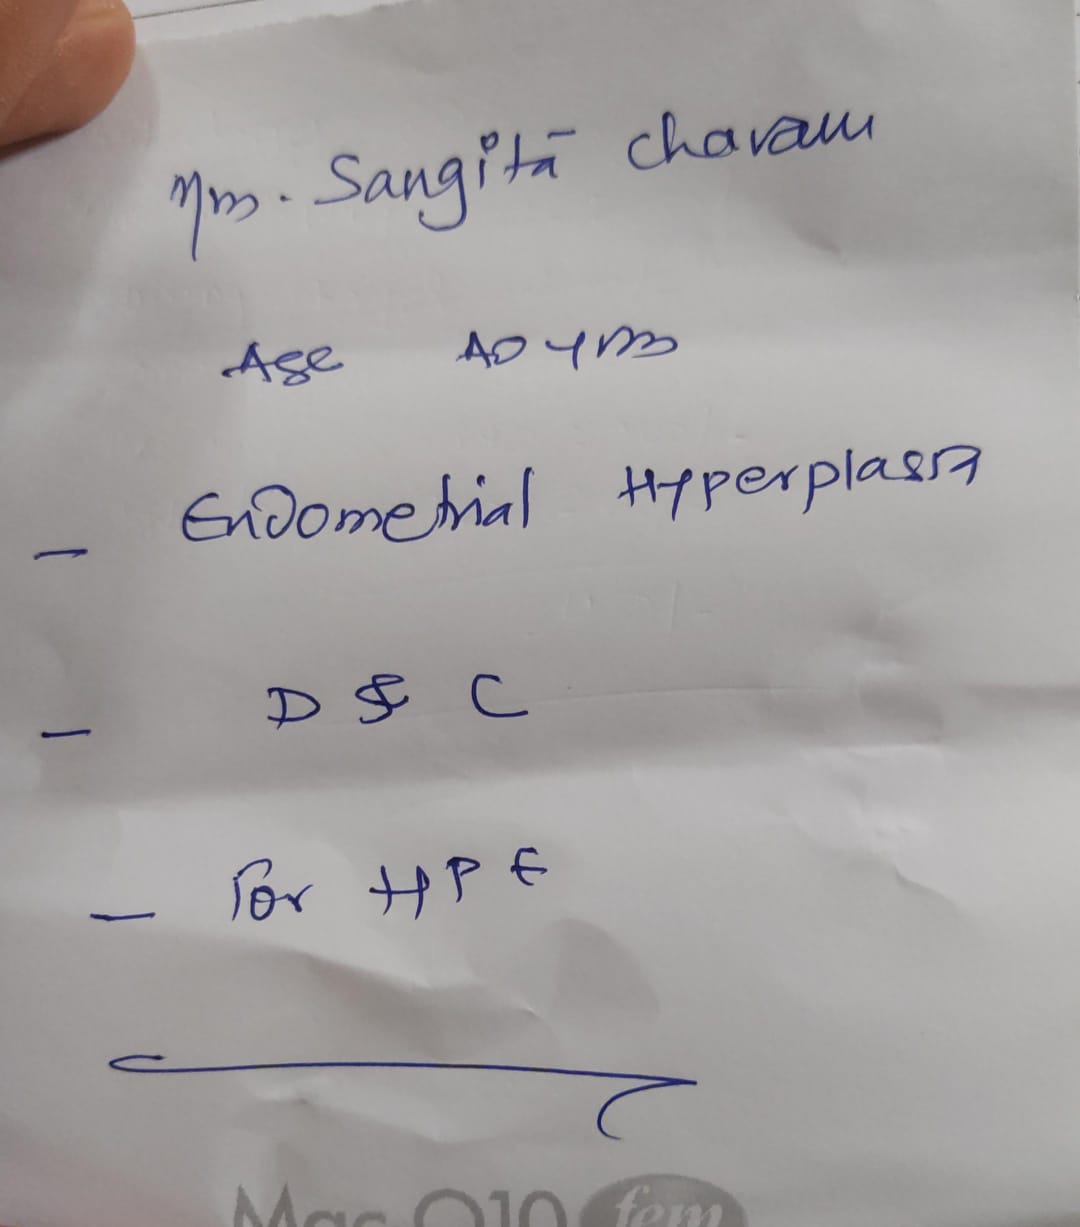 Mrs. Sangitā Chavan
Age 40 yrs
- Endometrial Hyperplasia
- D & C
- For HPE
Mac Q10 fem